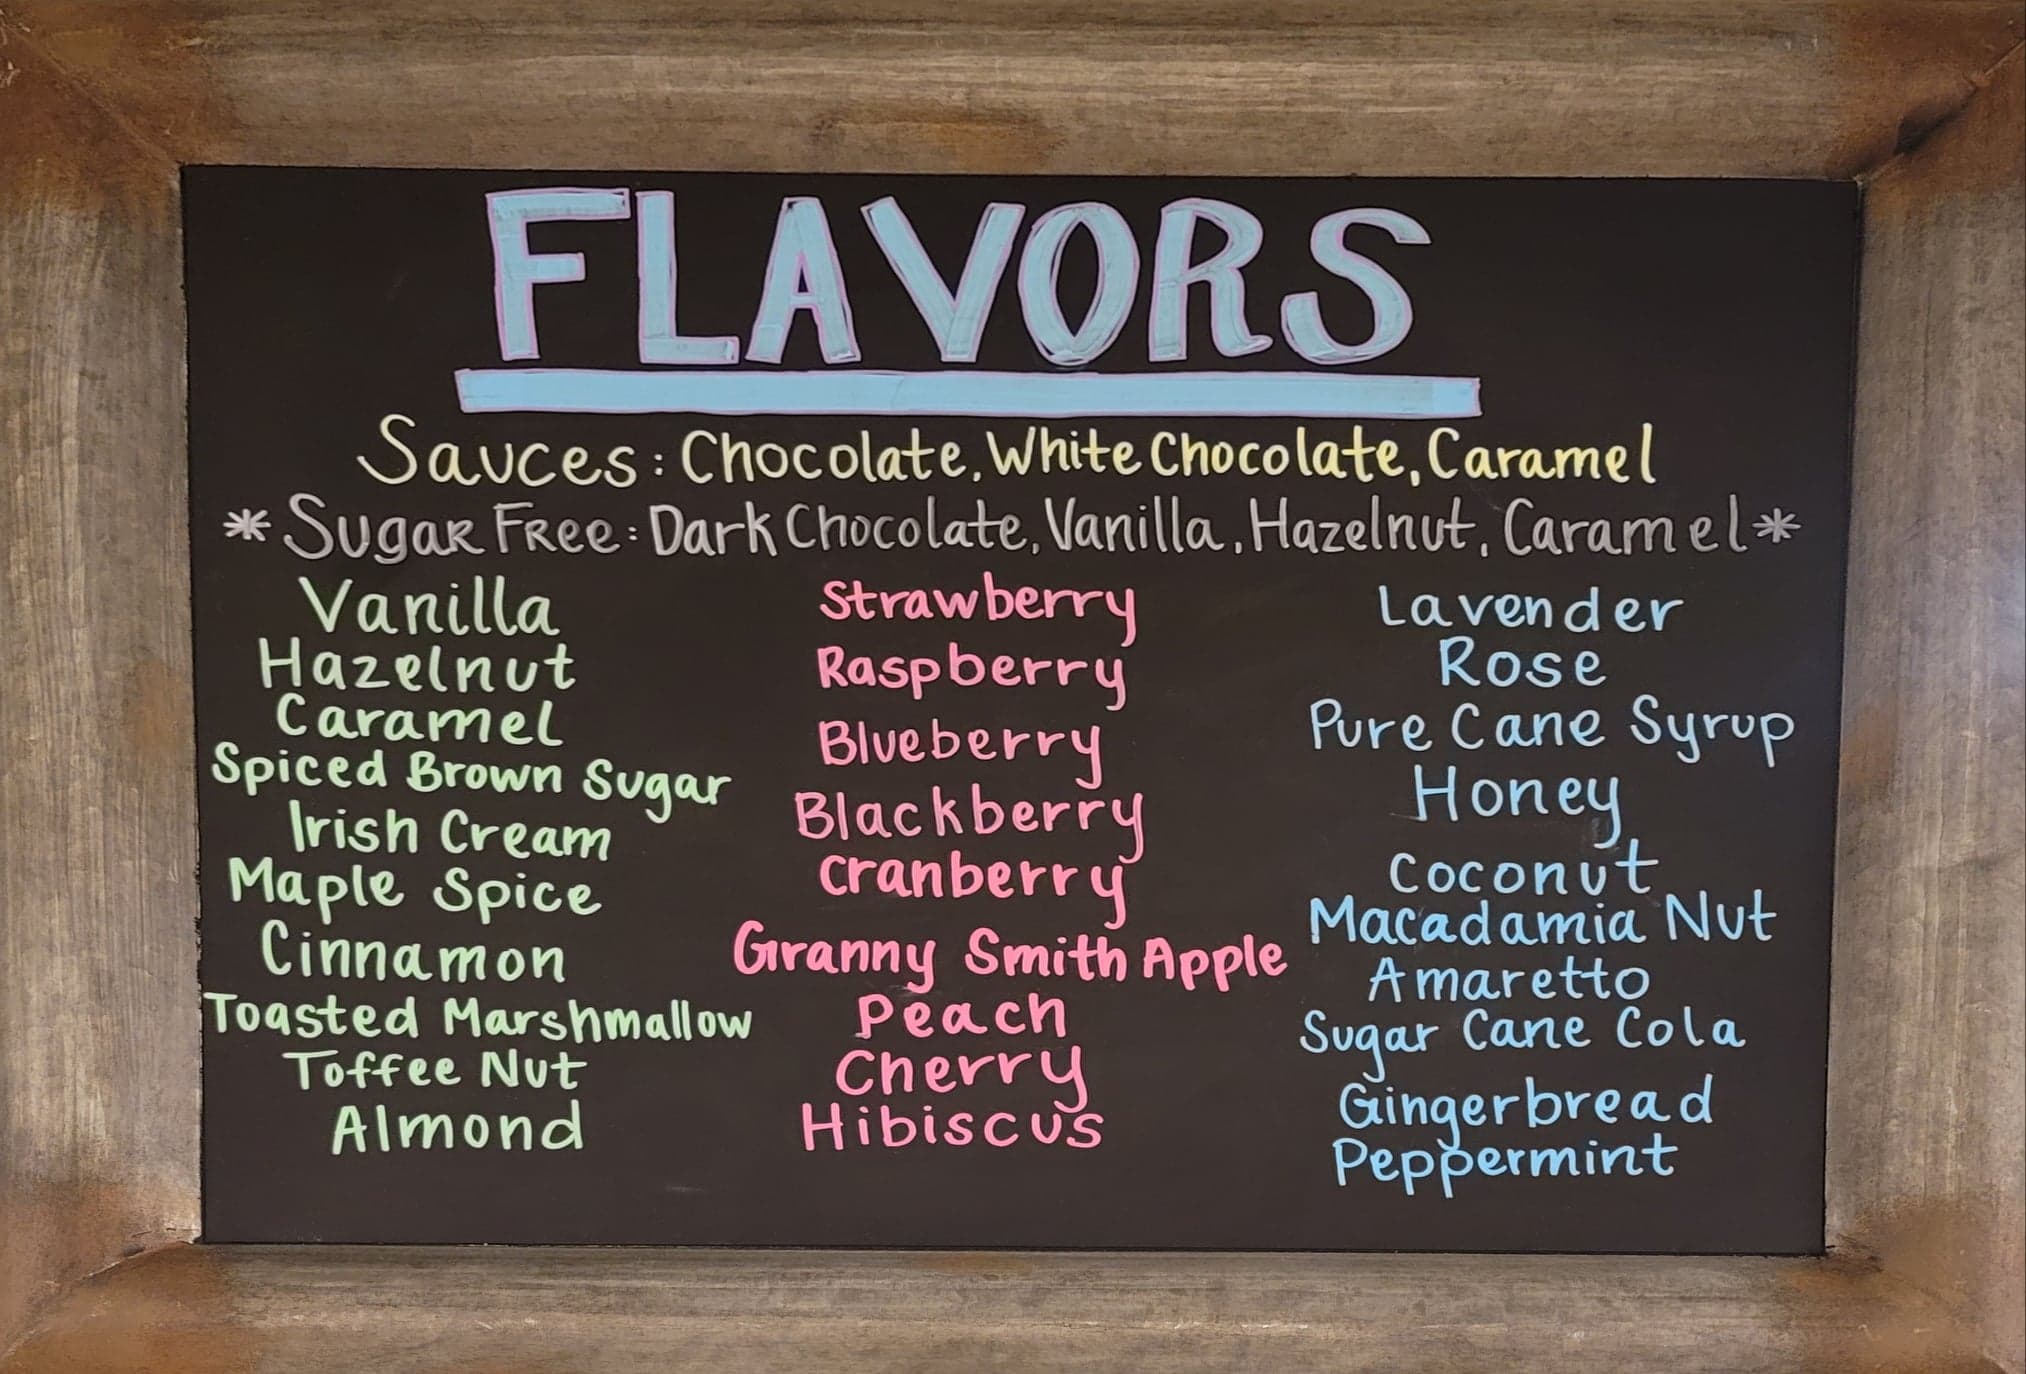 FLAVORS
Sauces: Chocolate, White Chocolate, Caramel
*Sugar Free: Dark Chocolate, Vanilla, Hazelnut, Caramel*
Vanilla
Hazelnut
Caramel
Spiced Brown Sugar
Irish Cream
Maple Spice
Cinnamon
Toasted Marshmallow
Toffee Nut
Almond
Strawberry
Raspberry
Blueberry
Blackberry
Cranberry
Granny Smith Apple
Peach
Cherry
Hibiscus
Lavender
Rose
Pure Cane Syrup
Honey
Coconut
Macadamia Nut
Amaretto
Sugar Cane Cola
Gingerbread
Peppermint